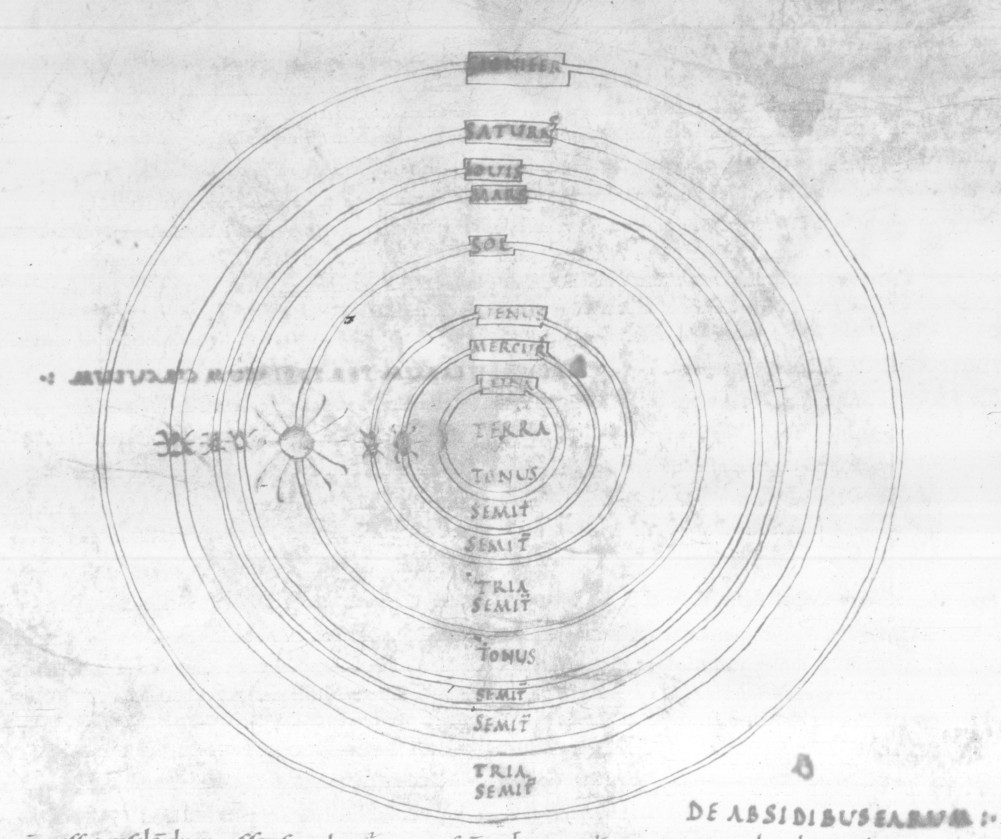 SIGNIFER
SATURN
IOUIS
MARS
SOL
UENUS
MERCUR
LUNA
TERRA
TONUS
SEMIT
SEMIT
TRIA
SEMIT
TONUS
SEMIT
SEMIT
TRIA
SEMIT
DE ABSIDIBUS EARUM :·